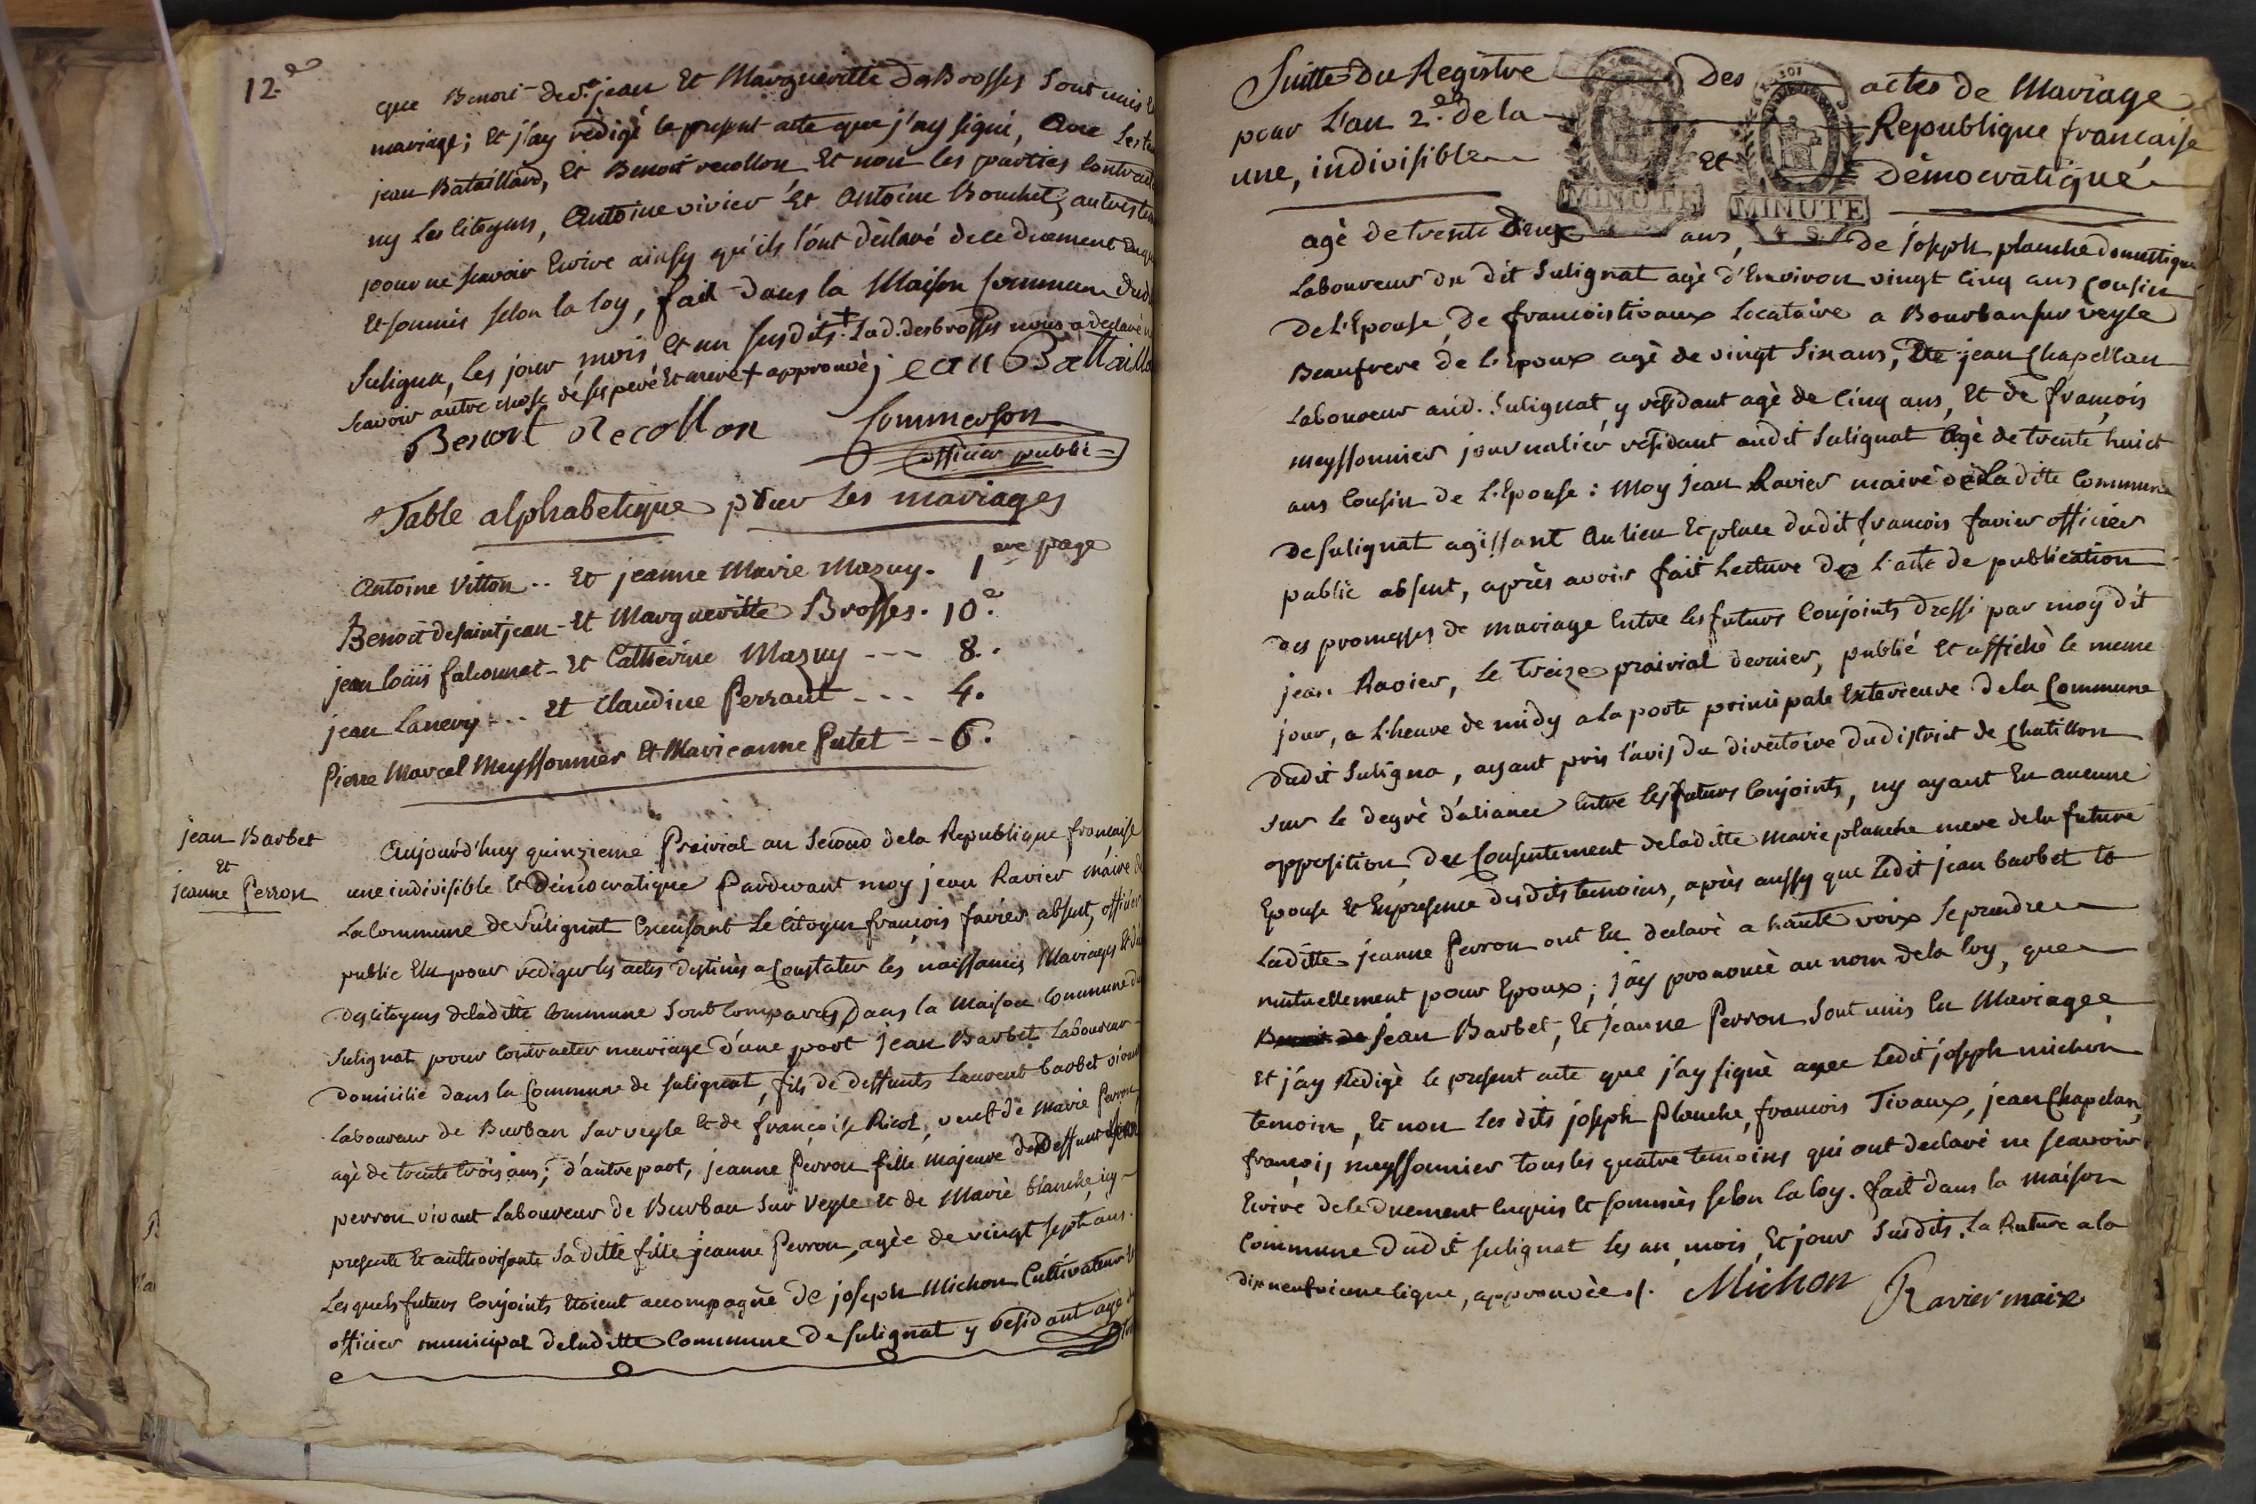 12.e
que Benoit de st. jean Et Margueritte desBrosses Sont unis
mariage; Et j'ay rédigé le present acte que j'ay signé, avec Les
jean Bataillard, Et Benoit recollon Et non les parties
ny Les Citoyens, Antoine vivier Et Antoine Bouchet, autres
pour ne scavoir Ecrire ainsy qu'ils l'ont déclaré de ce duement
Et sommés selon la loy, fait dans la Maison Commune
Suligna, les jour mois Et an susdits. + Lad. desbrosses nous a declaré
Scavoir autre chose + approuvé jean Bataillard
Benoit Recollon Commerson
officier public
Table alphabetique pour Les mariages
Antoine Vitton .. Et jeanne Marie Mazuy. 1ere page
Benoit desaint jean - Et Margueritte Brosses. 10.e
jean loüis falconnet - Et Catherine Mazuy --- 8..
jean Lanery --- Et Claudine Perraut --- 4.
Pierre Marcel Meyssonnier Et Marieanne Putet -- 6.
jean Barbet
Et
jeanne Perron
Aujourd'huy quinzieme Prairial an Second dela Republique francaise
une indivisible Et Démocratique Pardevant moy jean Ravier maire de
La Commune de Sulignat Le Citoyen françois favier absent, officier
public Elu pour rediger les actes destinés a Constater les naissances Mariages Et
des citoyens deladitte Commune Sont Comparus Dans la Maison Commune
Sulignat pour Contracter mariage d'une part jean Barbet Laboureur
domicilié dans la Commune de Sulignat, fils de deffunts Laurent barbet vivant
Laboureur de Burban sur veyle Et de françoise Ricol, veuf de Marie Perron,
agé de trente trois ans; d'autre part, jeanne Perron fille majeure de deffunt
perron vivant Laboureur de Burban Sur Veyle Et de Marie blanche icy
presente Et authorisante Saditte fille jeanne Perron, agée de vingt sept ans.
Lesquels futurs Conjoints Etoient accompagné de joseph Michon Cultivateur
officier municipal deladitte Commune de Sulignat y residant agé
Suitte du Registre des actes de Mariage
pour L'an 2.e de la Republique francaise
une, indivisible Et Démocratique
MINUTE MINUTE
4 S.
agé de trente deux ans, de joseph planche domestique
Laboureur du dit Sulignat agé d'Environ vingt Cinq ans Cousin
De L'Epouse, de francois tivaux Locataire a Bourban sur veyle
Beaufrere de l'Epoux agé de vingt Six ans, de jean Chapellan
Laboureur aud. Sulignat y residant agé de Cinq ans, Et de françois
meyssonnier journalier residant audit Sulignat agé de trente huict
ans Cousin de L'Epouse: Moy jean Ravier maire de Ladite Commune
de sulignat agissant au lieu Et place dudit francois favier officier
public absent, après avoir fait Lecture de l'acte de publication
des promesses de mariage Entre les futurs Conjoints dressé par moy dit
jean Ravier, le treize prairial dernier, publié Et affiché le meme
jour, a L'heure de midy a la porte principale Exterieure de la Commune
Dudit Suligna, ayant pris l'avis du directoire du district de Chatillon
Sur le degré d'aliance Entre les futurs Conjoints, ny ayant Eu aucune
opposition, du Consentement deladitte marie planche mere dela future
Epouse Et En presence desdits temoins, après aussy que Ledit jean barbet Et
Laditte jeanne Perron ont Eu declaré a haute voix Se prendre
mutuellement pour Epoux; j'ay prononcé au nom de la loy, que
Benoit de jean Barbet, Et jeanne Perron Sont unis En Mariage
Et j'ay Redigé le present acte que j'ay signé avec Ledit joseph michon
temoin, Et non Les dits joseph Planche, francois Tivaux, jean Chapelan,
françois meyssonnier tous les quatre temoins qui ont declaré ne scavoir
Ecrire de ce duement Enquis Et sommés selon la loy. fait dans la maison
Commune dudit sulignat les an, mois, Et jour Susdits. La Rature a la
dixneufvieme ligne, approuvée ./. Michon Ravier maire